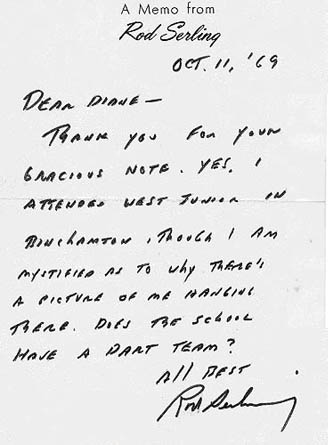 A Memo from
Rod Serling
OCT. 11, '69
DEAR DIANE —
THANK YOU FOR YOUR
GRACIOUS NOTE. YES, I
ATTENDED WEST JUNIOR IN
BINGHAMTON, THOUGH I AM
MYSTIFIED AS TO WHY THERE'S
A PICTURE OF ME HANGING
THERE. DOES THE SCHOOL
HAVE A DART TEAM?
All BEST
Rod Serling